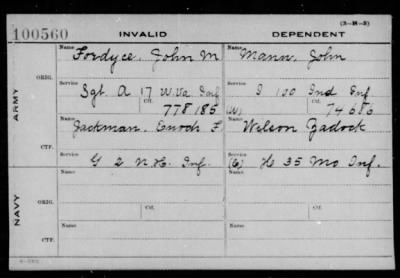 (3-H-3)
100560 INVALID DEPENDENT
Name Name
Fordyce, John M Mann, John
ORIG.
Service Service
Sgt A 17 W.Va. Inf I 100 Ind Inf
Ctf. Ctf.
778185 (W) 74686
ARMY
Name Name
Jackman, Enoch F. Wilson Zadock
CTF.
Service Service
G 2 N.H. Inf. (C) H 35 Mo Inf.
Name Name
ORIG.
Service Service
Ctf. Ctf.
NAVY
Name Name
CTF.
Service Service